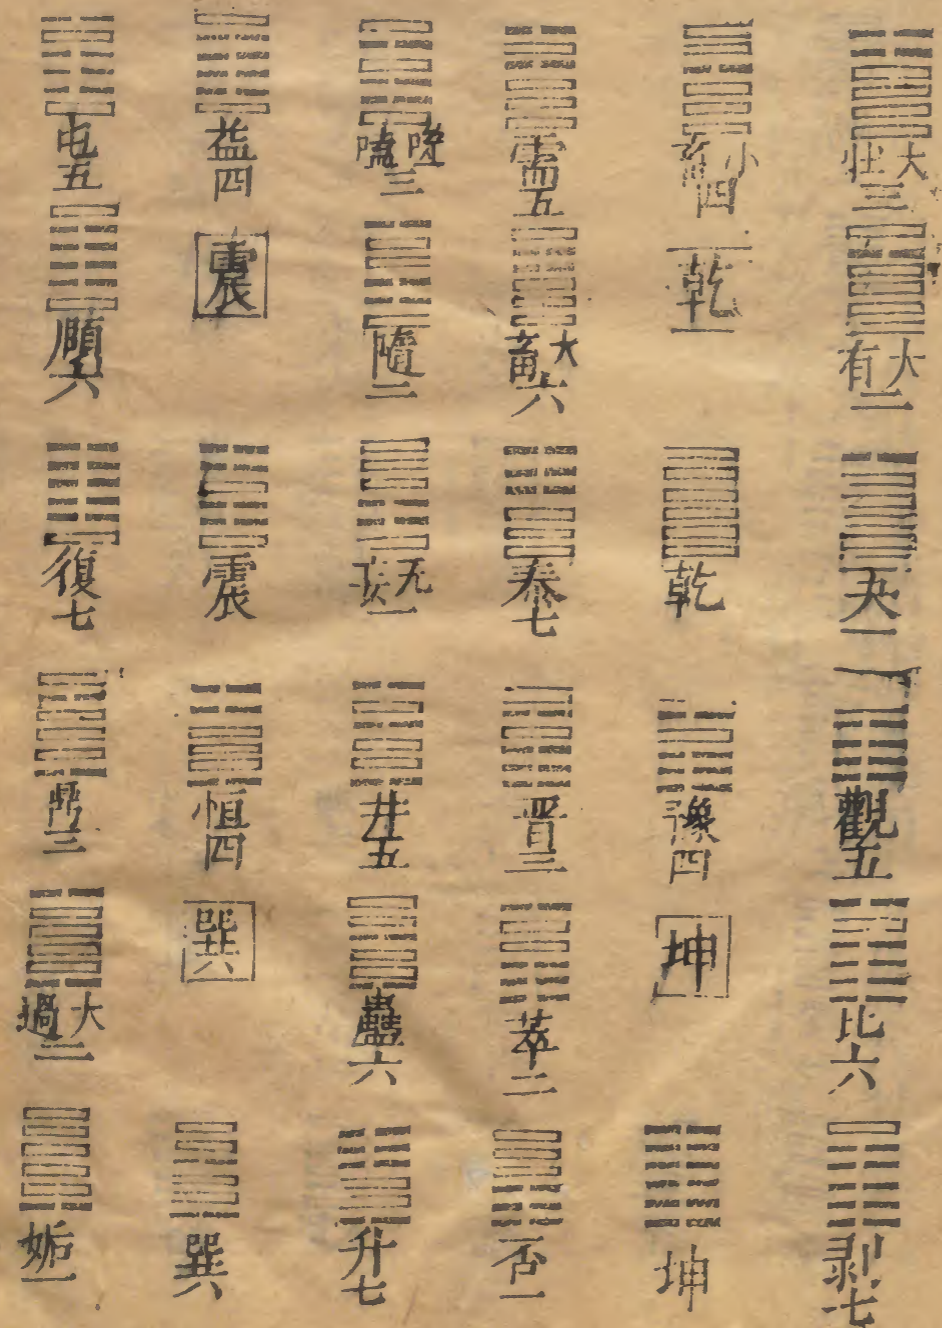 大壯三
大有二
夬一
觀五
比六
剥七
小畜四
乾
乾
豫四
坤
坤
需五
大畜六
泰七
晋三
萃二
否一
噬嗑三
隨二
无妄一
井五
蠱六
升七
益四
震
震
恒四
巽
巽
屯五
頤六
復七
鼎三
大過二
姤一